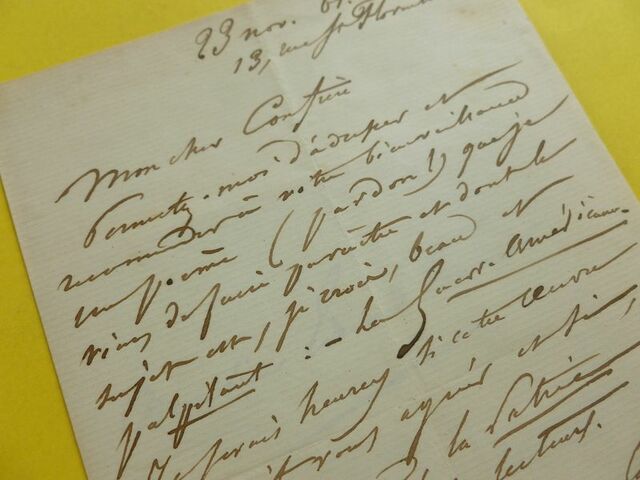 23 nov. 61.
13, rue St Florentin
Mon cher Confrère
Permettez-moi d'adresser et
recommander à votre bienveillance
un poème (pardon!) que je
viens de faire paraître et dont le
sujet est, je crois, beau et
palpitant : - La Guerre Américaine.
Je serais heureux si cette œuvre
vous agrée et si,
la Patrie
lecteurs.